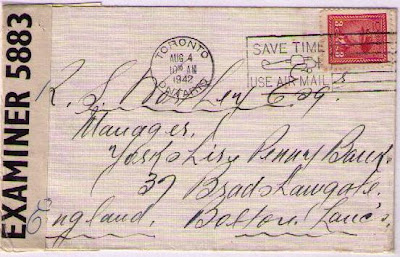 EXAMINER 5883
TORONTO
AUG 4
10 AM
1942
ONTARIO
SAVE TIME
USE AIR MAIL
R. S. Esq.
Manager,
Yorkshire Penny Bank,
37 Bradshawgate,
England. Bolton. Lancs.